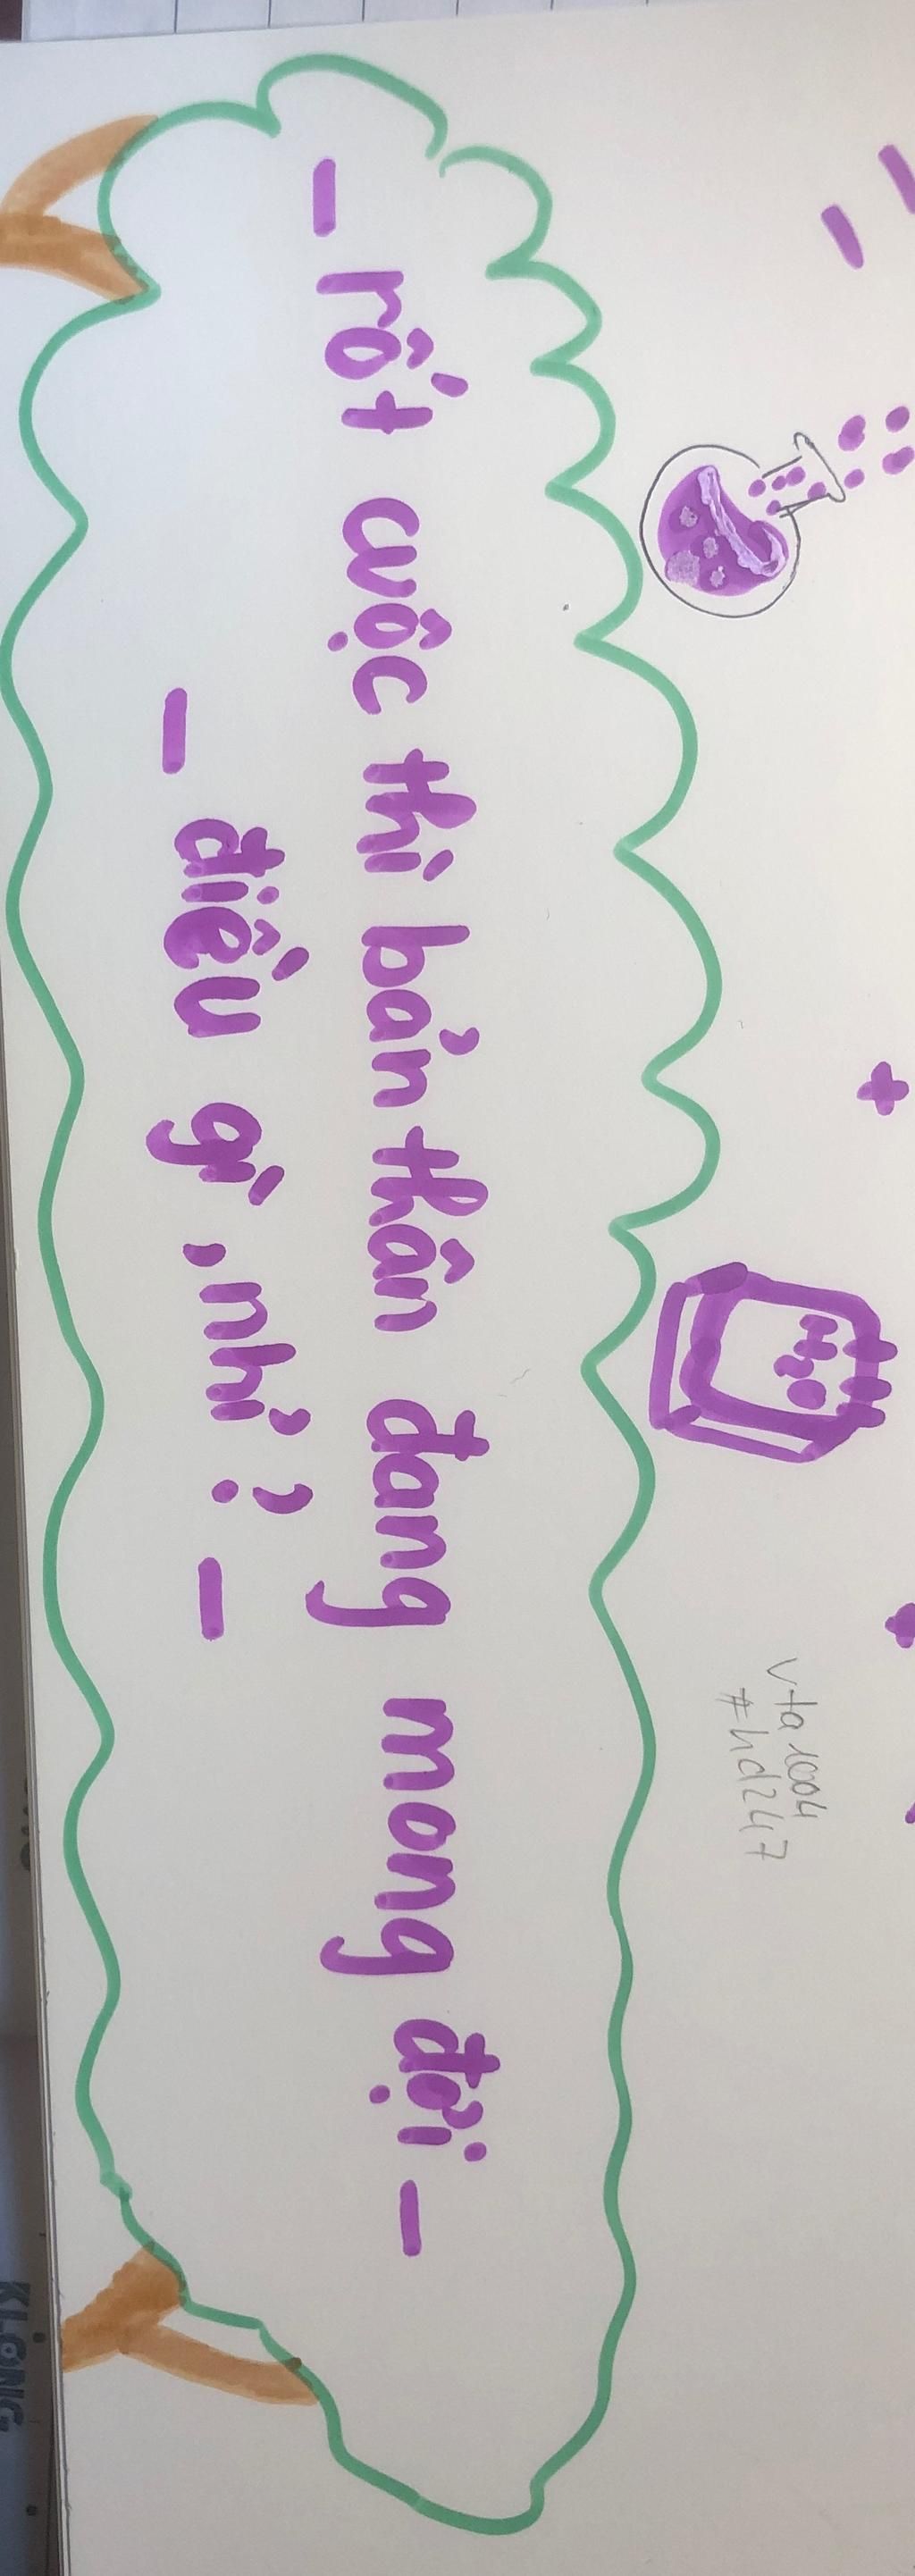 H₂O
vta 1004
#hd247
– rốt cuộc thì bản thân đang mong đợi –
– điều gì, nhỉ? –
KLONG